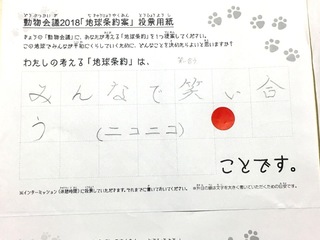 動物会議2018「地球条約案」投票用紙
きょうの「動物会議」に、あなたが考える「地球条約」を1つ提案してください。
この地球でみんなが平和にくらしていくために、どんなことを決めたらよいと思いますか?
わたしの考える「地球条約」は、
みんなで笑い合
う(ニコニコ)
ことです。
※インターミッション(休憩時間)に投票していただきます。それまでに書いておいてください。